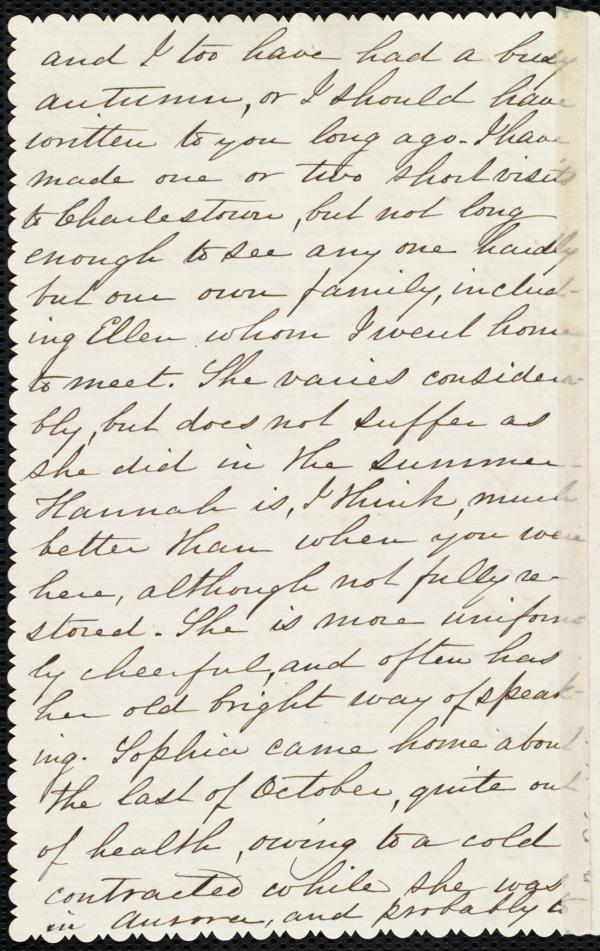 and I too have had a busy
autumn, or I should have
written to you long ago. I have
made one or two short visits
to Charlestown, but not long
enough to see any one hardly
but our own family, includ-
ing Ellen whom I went home
to meet. She varies considera-
bly, but does not suffer as
she did in the summer.
Hannah is, I think, much
better than when you were
here, although not fully re-
stored. She is more uniform-
ly cheerful, and often has
her old bright way of speak-
ing. Sophia came home about
the last of October, quite out
of health, owing to a cold
contracted while she was
in Aurora, and probably to